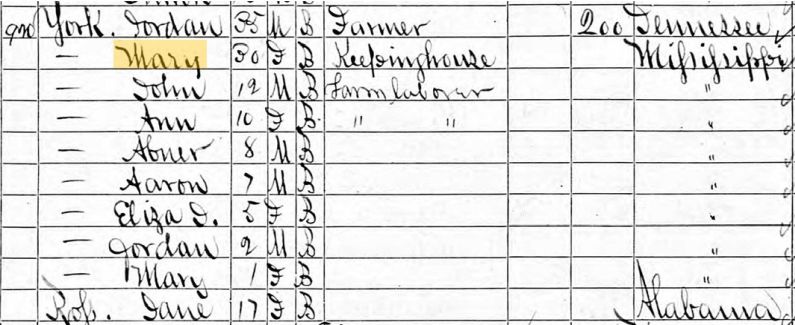 920 York. Jordan 35 M B Farmer 200 Tennessee
— Mary 30 F B Keeping house Mississippi
— John 12 M B Farm laborer "
— Ann 10 F B " " "
— Abner 8 M B "
— Aaron 7 M B "
— Eliza D. 5 F B "
— Jordan 2 M B "
— Mary 1 F B "
Ross. Jane 17 F B Alabama